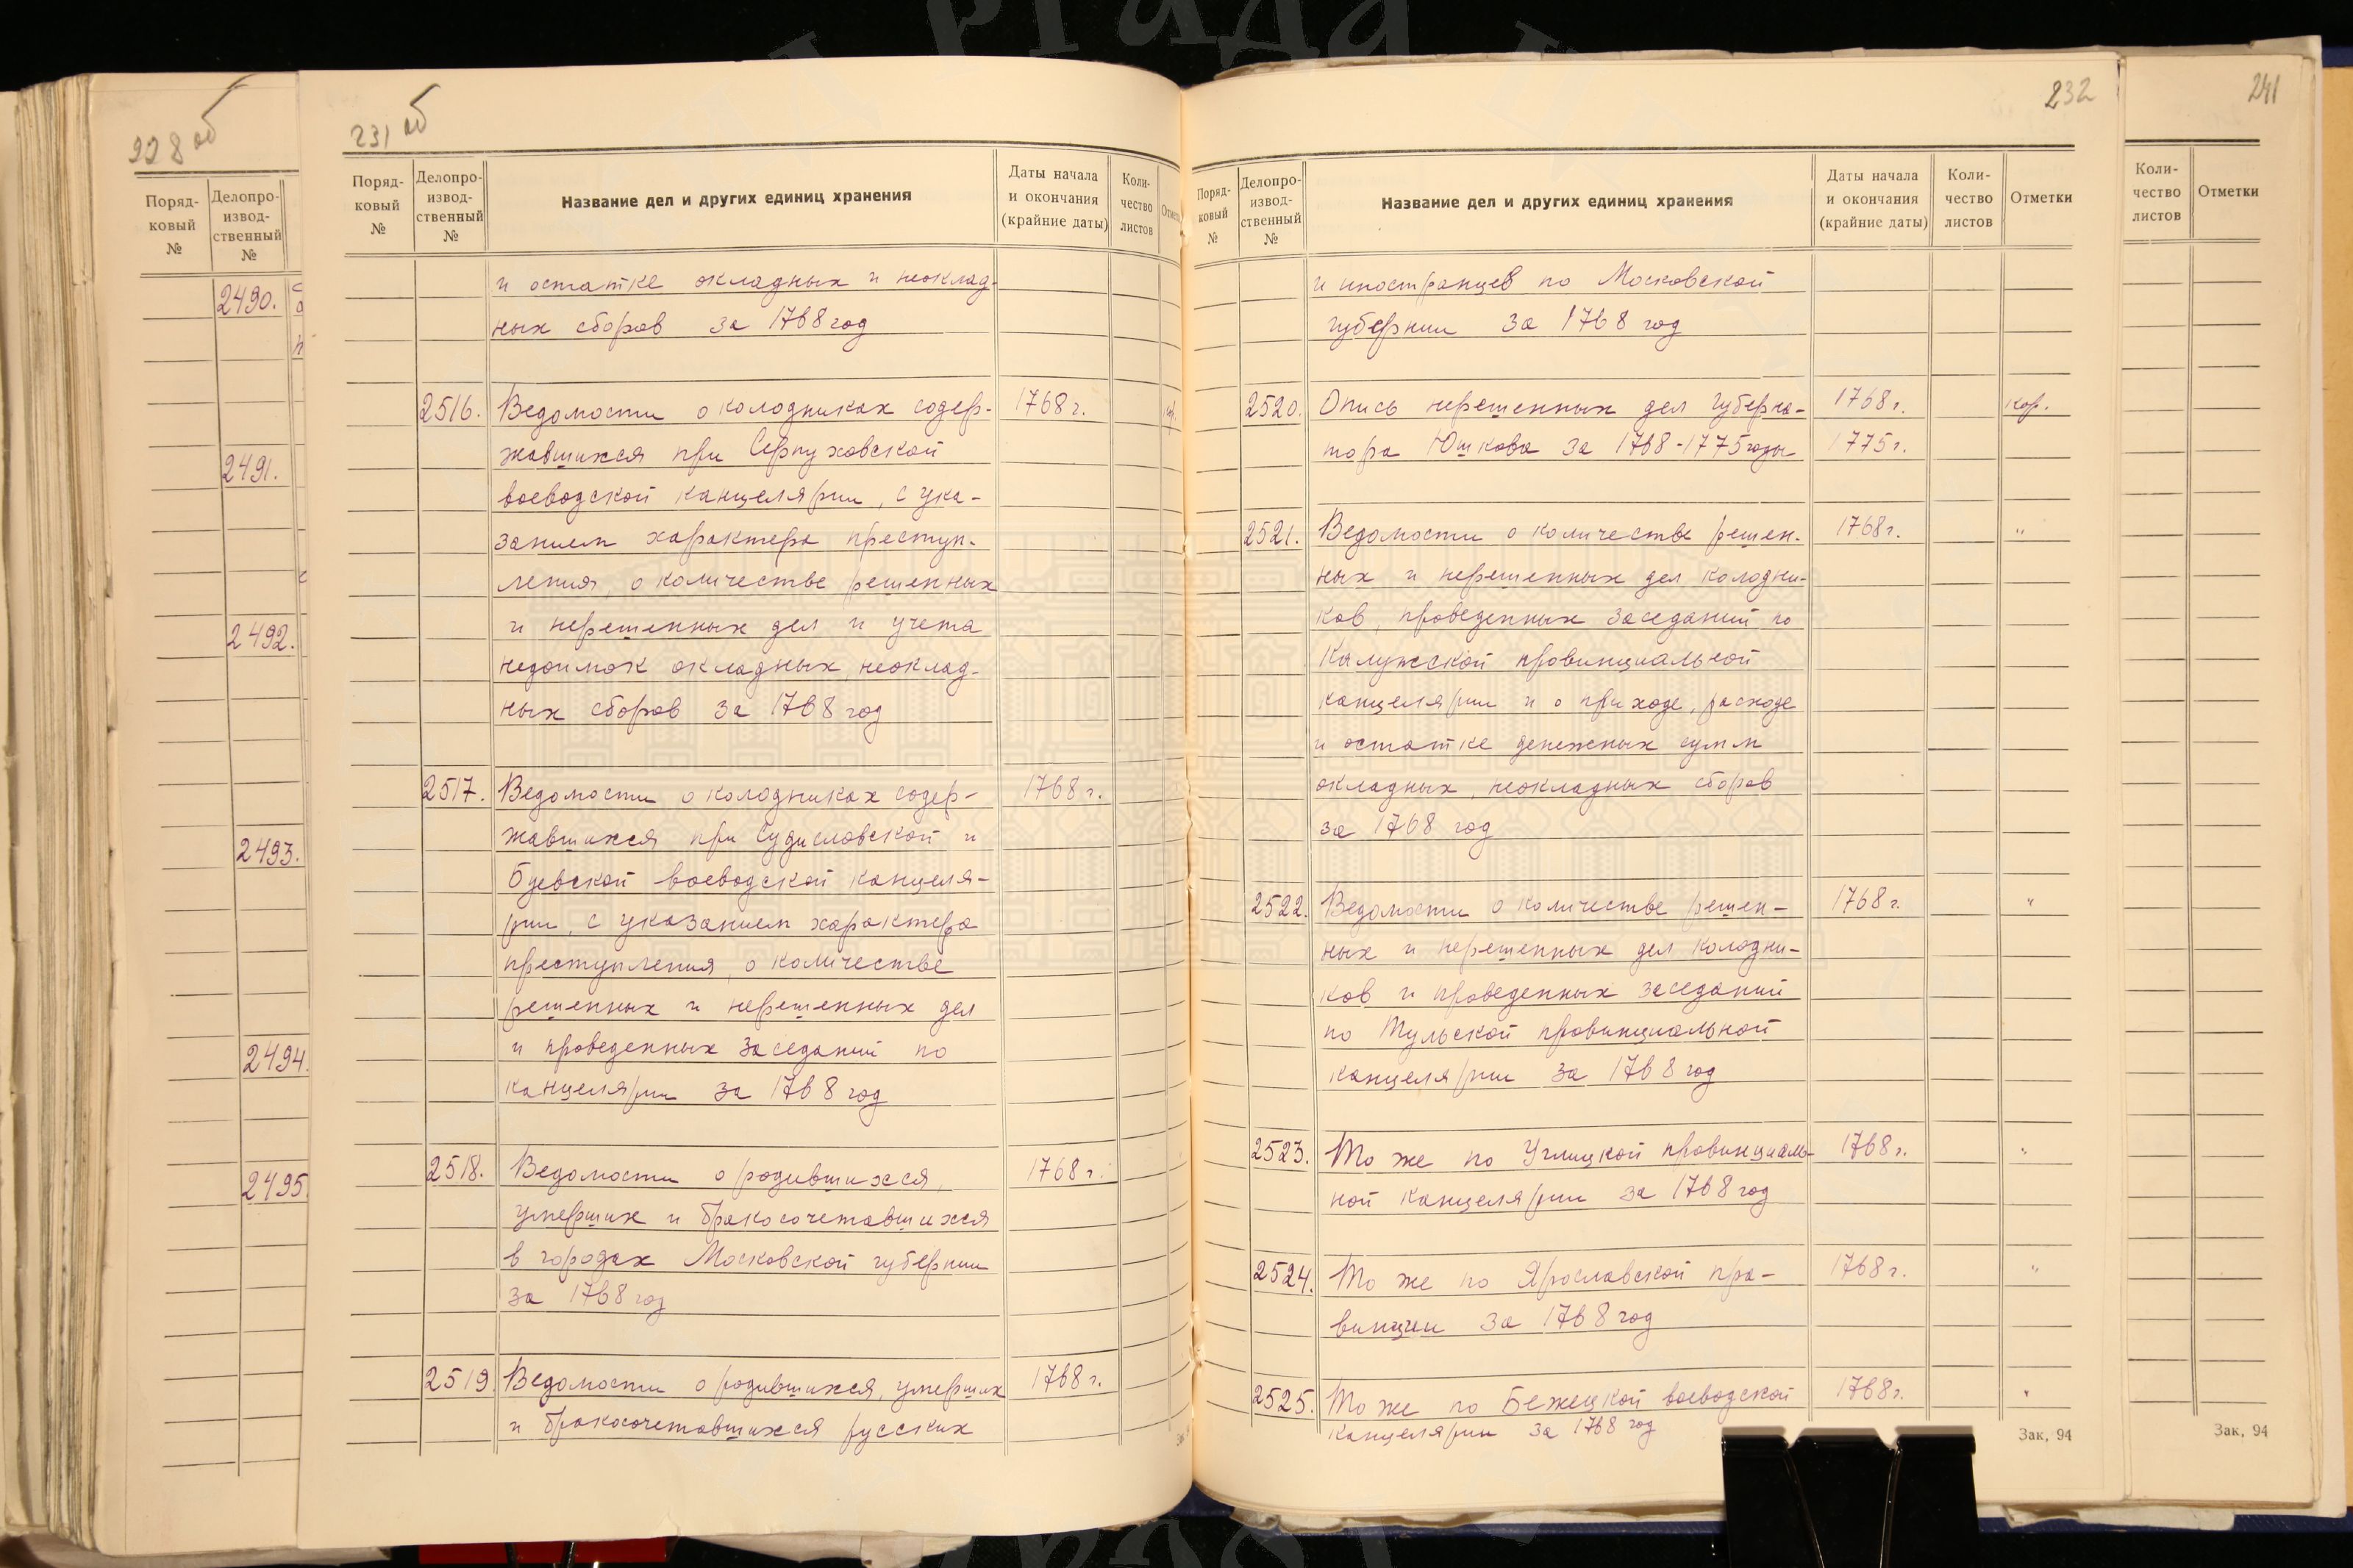 228 об
Поряд-
ковый
№
Делопро-
извод-
ственный
№
2490.
2491.
2492.
2493.
2494.
2495.
231 об
Поряд-
ковый
№
Делопро-
извод-
ственный
№
Название дел и других единиц хранения
Даты начала
и окончания
(крайние даты)
Коли-
чество
листов
и остатке окладных и неоклад-
ных сборов за 1768 год
2516. Ведомости о колодниках содер- 1768 г.
жавшихся при Серпуховской
воеводской канцелярии, с ука-
занием характера преступ-
ления, о количестве решенных
и нерешенных дел и учета
недоимок окладных, неоклад-
ных сборов за 1768 год
2517. Ведомости о колодниках содер- 1768 г.
жавшихся при Судиславской и
Буевской воеводской канцеля-
рии, с указанием характера
преступления, о количестве
решенных и нерешенных дел
и проведенных заседаний по
канцелярии за 1768 год
2518. Ведомости о родившихся, 1768 г.
умерших и бракосочетавшихся
в городах Московской губернии
за 1768 год
2519 Ведомости о родившихся, умерших 1768 г.
и бракосочетавшихся русских
232
Поряд-
ковый
№
Делопро-
извод-
ственный
№
Название дел и других единиц хранения
Даты начала
и окончания
(крайние даты)
Коли-
чество
листов
Отметки
и иностранцев по Московской
губернии за 1768 год
2520. Опись нерешенных дел губерна- 1768 г. кор.
тора Юшкова за 1768-1775 годы 1775 г.
2521. Ведомости о количестве решен- 1768 г. "
ных и нерешенных дел колодни-
ков, проведенных заседаний по
Калужской провинциальной
канцелярии и о приходе, расходе
и остатке денежных сумм
окладных, неокладных сборов
за 1768 год
2522. Ведомости о количестве решен- 1768 г. "
ных и нерешенных дел колодни-
ков и проведенных заседаний
по Тульской провинциальной
канцелярии за 1768 год
2523. То же по Углицкой провинциаль- 1768 г. "
ной канцелярии за 1768 год
2524. То же по Ярославской про- 1768 г. "
винции за 1768 год
2525. То же по Бежецкой воеводской 1768 г. "
канцелярии за 1768 год
Зак, 94
241
Коли-
чество
листов
Отметки
Зак, 94